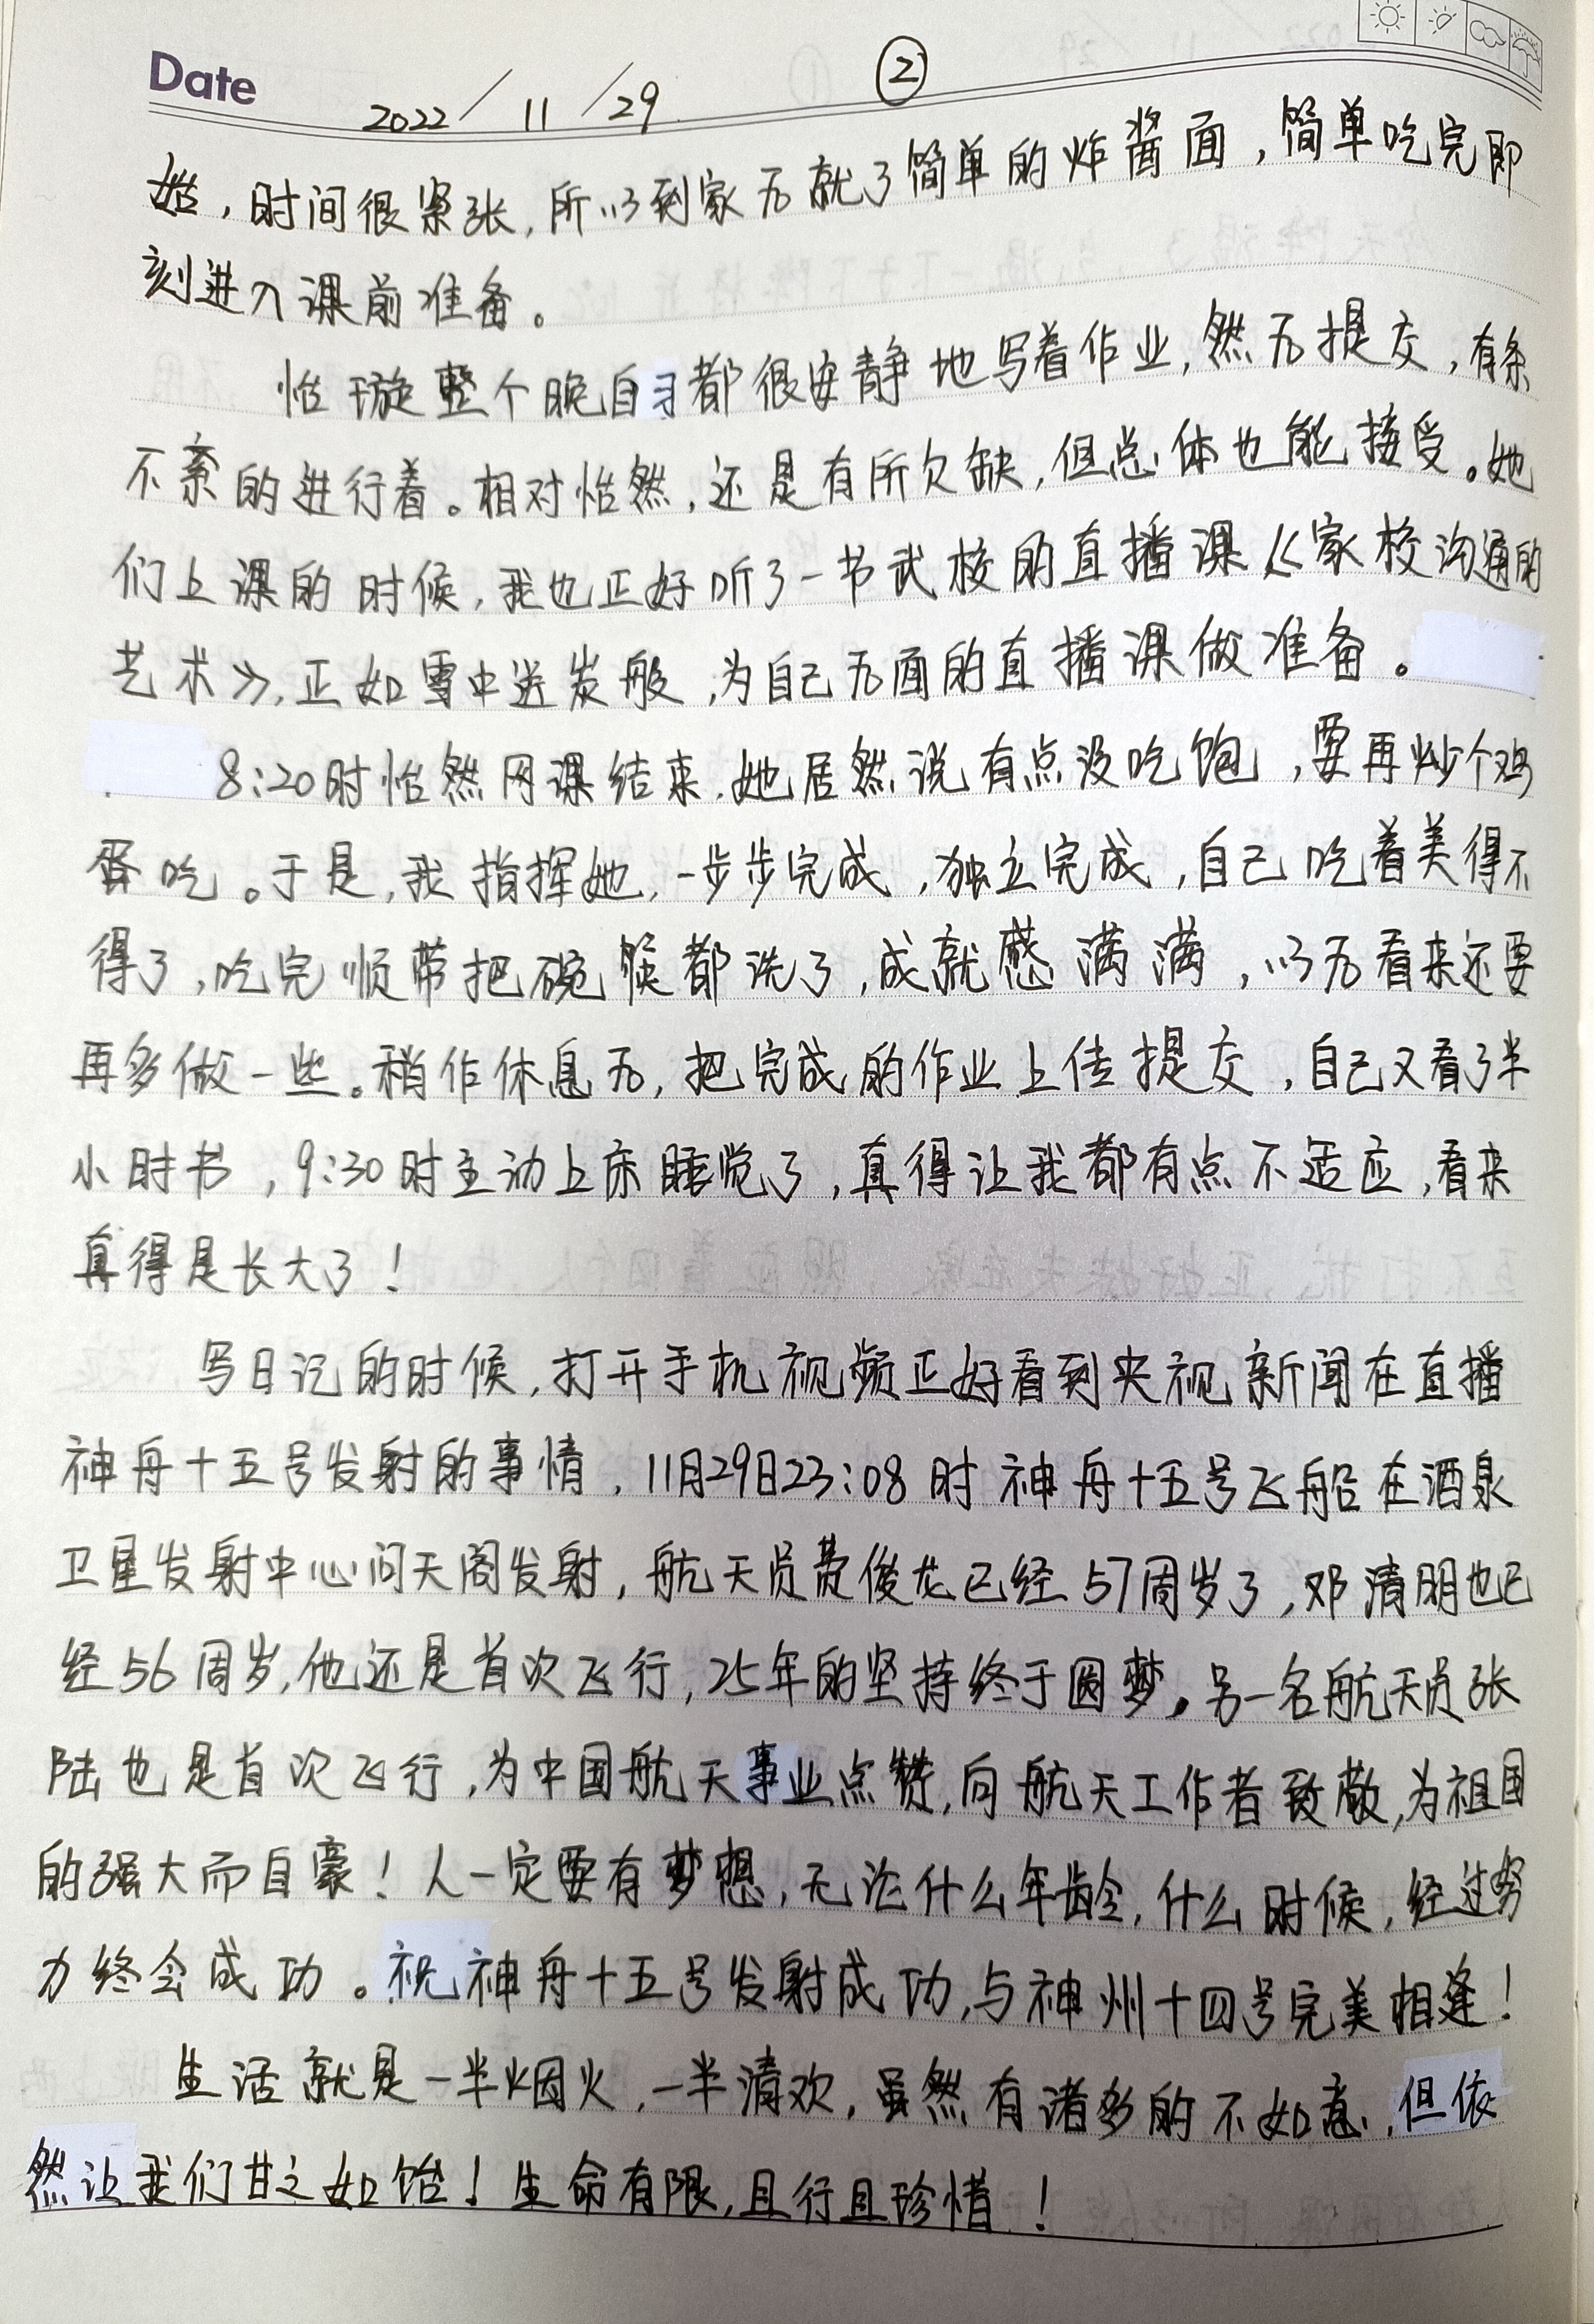 Date 2022/11/29 ②
始，时间很紧张，所以到家后就了简单的炸酱面，简单吃完即
刻进入课前准备。
怡璇整个晚自习都很安静地写着作业，然后提交，有条
不紊的进行着。相对怡然，还是有所欠缺，但总体也能接受。她
们上课的时候，我也正好听了一节武校的直播课《家校沟通的
艺术》，正如雪中送炭般，为自己后面的直播课做准备。
8:20时怡然网课结束，她居然说有点没吃饱，要再炒个鸡
蛋吃。于是，我指挥她，一步步完成，独立完成，自己吃着美得不
得了，吃完顺带把碗筷都洗了，成就感满满，以后看来还要
再多做一些。稍作休息后，把完成的作业上传提交，自己又看了半
小时书，9:30时主动上床睡觉了，真得让我都有点不适应，看来
真得是长大了！
写日记的时候，打开手机视频正好看到央视新闻在直播
神舟十五号发射的事情，11月29日23:08时神舟十五号飞船在酒泉
卫星发射中心问天阁发射，航天员费俊龙已经57周岁了，邓清明也已
经56周岁，他还是首次飞行，25年的坚持终于圆梦。另一名航天员张
陆也是首次飞行，为中国航天事业点赞，向航天工作者致敬，为祖国
的强大而自豪！人一定要有梦想，无论什么年龄，什么时候，经过努
力终会成功。祝神舟十五号发射成功，与神州十四号完美相逢！
生活就是一半烟火，一半清欢，虽然有诸多的不如意，但依
然让我们甘之如饴！生命有限，且行且珍惜！